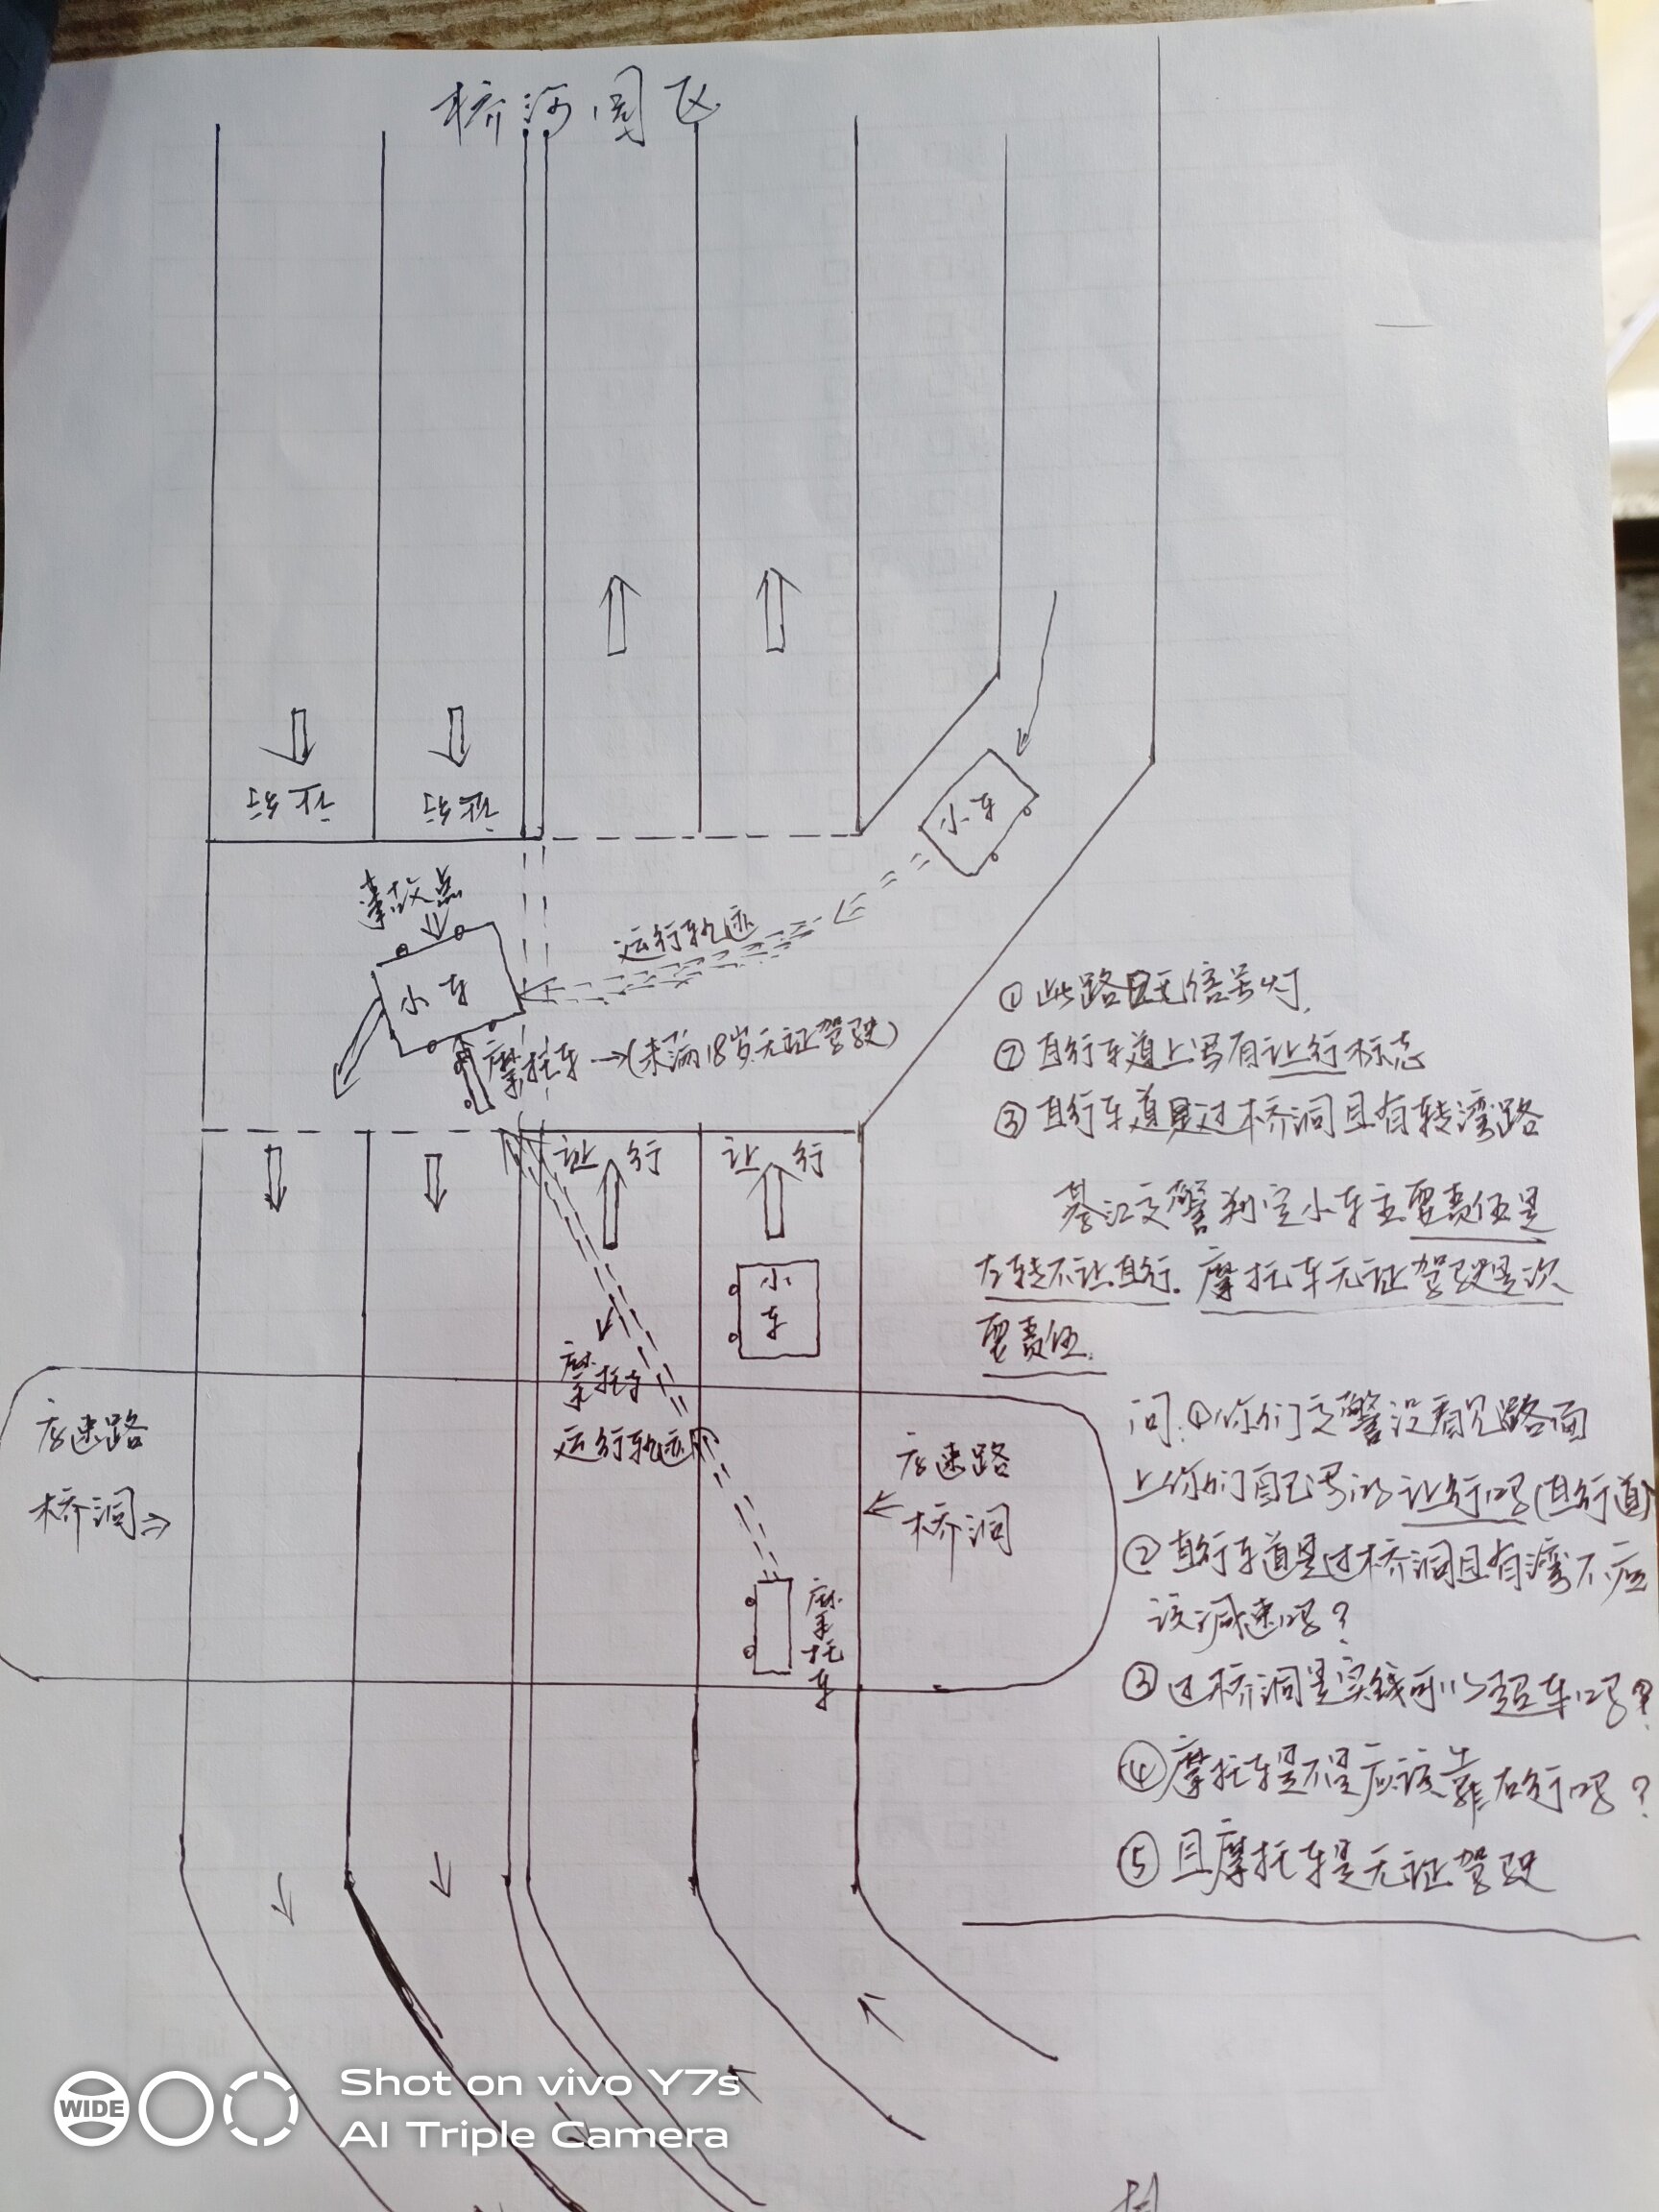 桥河园区
让行
让行
事故点
小车
小车
运行轨迹
摩托车→(未满18岁无证驾驶)
让 行
让 行
小车
摩托车
运行轨迹
高速路
桥洞
高速路
桥洞
摩托车
①此路口无信号灯,
②直行车道上写有让行标志
③直行车道是过桥洞且有转湾路
綦江交警判定小车主要责任是
左转不让直行.摩托车无证驾驶是次
要责任.
问:①你们交警没看见路面
上你们自己写的让行吗(直行道)
②直行车道是过桥洞且有湾不应
该减速吗?
③过桥洞是实线可以超车吗?
④摩托车是不是应该靠右行吗?
⑤且摩托车是无证驾驶
WIDE
Shot on vivo Y7s
AI Triple Camera